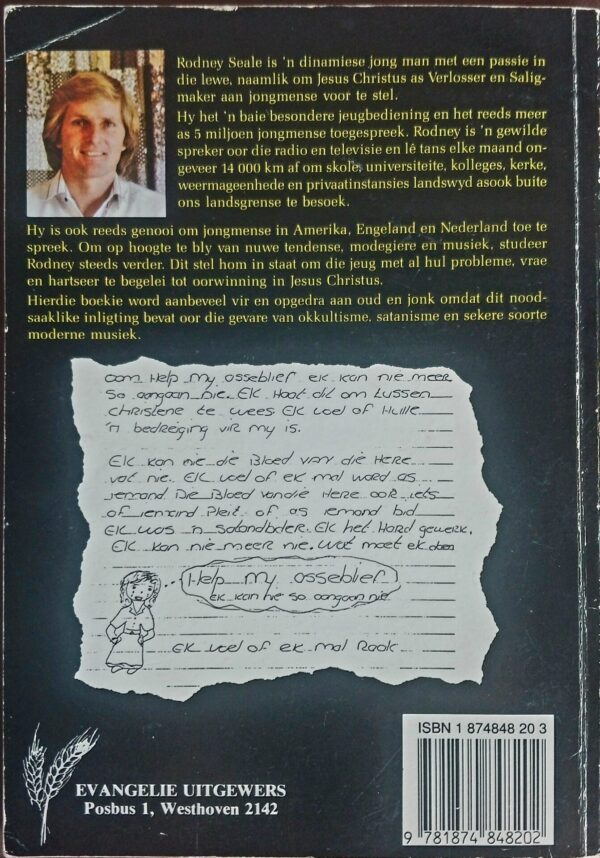 Rodney Seale is 'n dinamiese jong man met een passie in
die lewe, naamlik om Jesus Christus as Verlosser en Salig-
maker aan jongmense voor te stel.
Hy het 'n baie besondere jeugbediening en het reeds meer
as 5 miljoen jongmense toegespreek. Rodney is 'n gewilde
spreker oor die radio en televisie en lê tans elke maand on-
geveer 14 000 km af om skole, universiteite, kolleges, kerke,
weermageenhede en privaatinstansies landswyd asook buite
ons landsgrense te besoek.
Hy is ook reeds genooi om jongmense in Amerika, Engeland en Nederland toe te
spreek. Om op hoogte te bly van nuwe tendense, modegiere en musiek, studeer
Rodney steeds verder. Dit stel hom in staat om die jeug met al hul probleme, vrae
en hartseer te begelei tot oorwinning in Jesus Christus.
Hierdie boekie word aanbeveel vir en opgedra aan oud en jonk omdat dit nood-
saaklike inligting bevat oor die gevare van okkultisme, satanisme en sekere soorte
moderne musiek.
oom Help my osseblief ek kan nie meer
so aangaan nie. Ek Haat dit om tussen
christene te wees Ek voel of Hulle
'n bedreiging vir my is.
Ek kan nie die Bloed van die HERE
vat nie. Ek voel of ek mal word as
iemand Die Bloed van die HERE oor iets
of iemand Pleit of as iemand bid
Ek was 'n Satanbidder. Ek het Hard gewerk.
Ek kan nie meer nie. Wat moet ek doen
Help my osseblief
ek kan nie so aangaan nie
Ek voel of ek mal Raak
ISBN 1 874848 20 3
EVANGELIE UITGEWERS
Posbus 1, Westhoven 2142
9 781874 848202